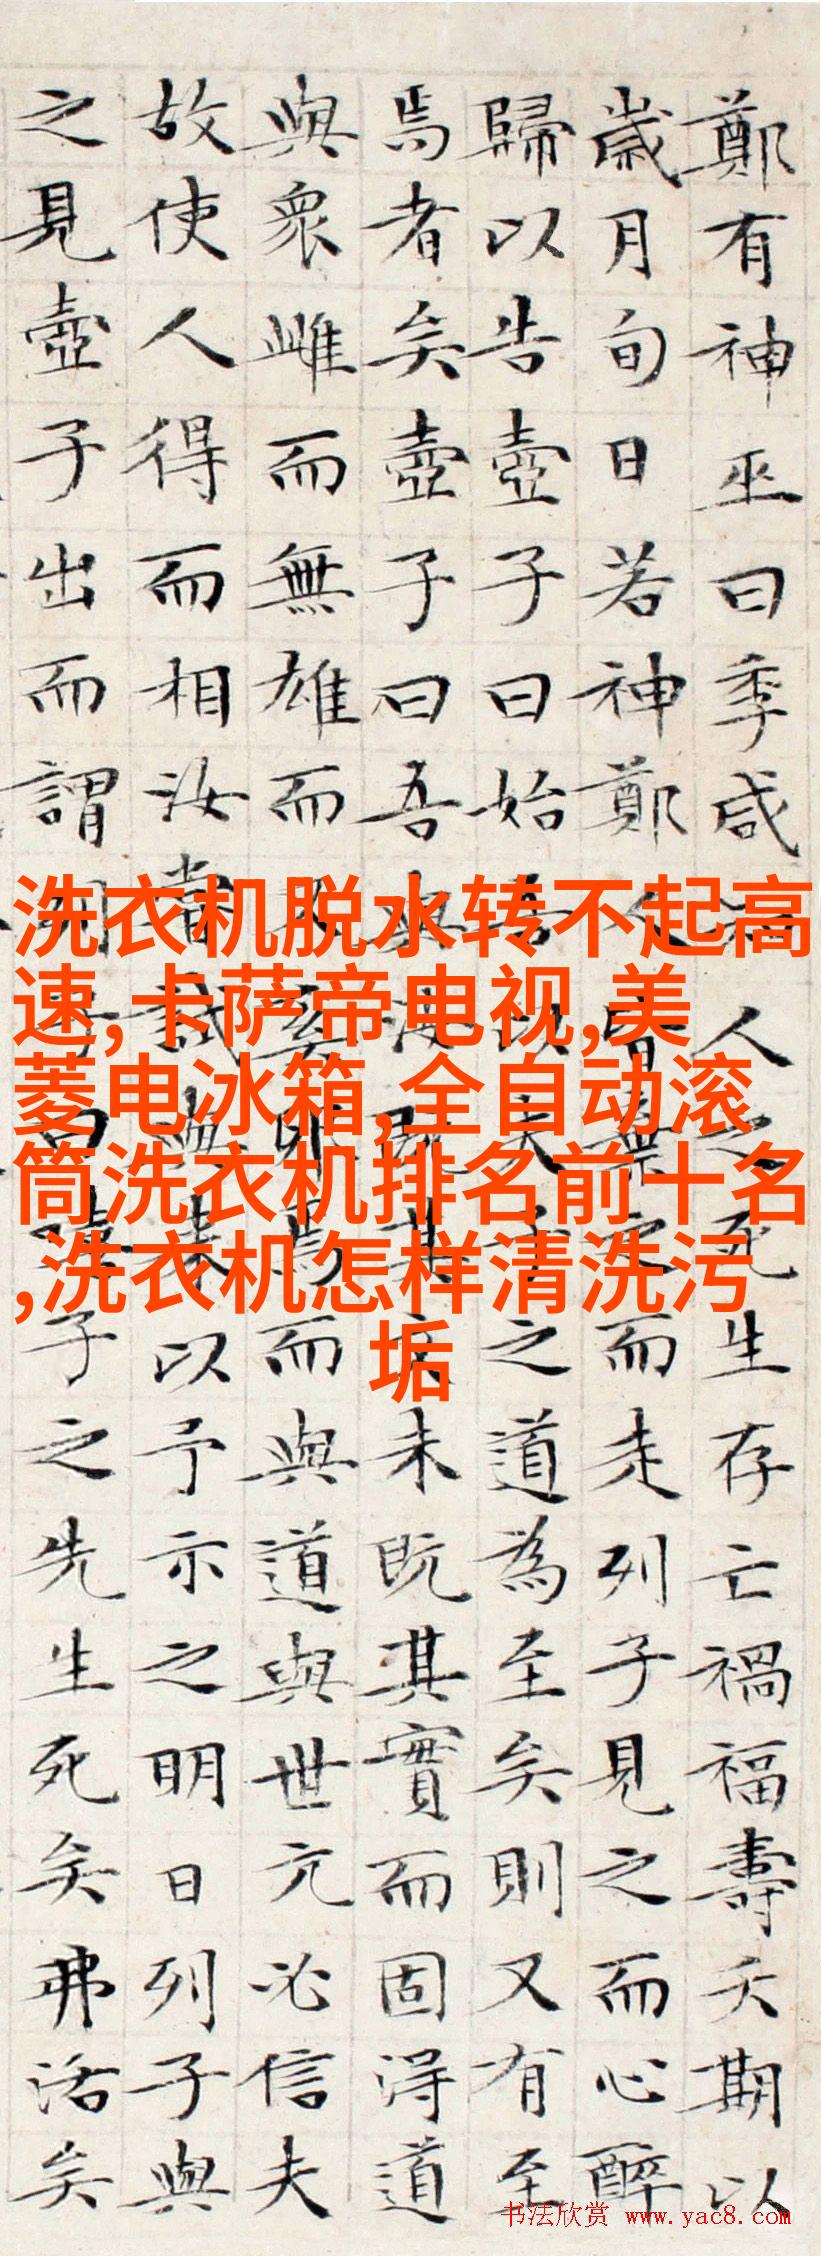 鄭有神巫曰季咸人之死生存亡禍福壽夭期以
歲月旬日若神鄭人皆棄而走列子見之而心醉
歸以告壺子曰始吾以夫子之道為至矣則又有至
焉者矣壺子曰吾與汝既其文未既其實而固得道
與眾雌而無雄而又奚卵焉而與道與世亢必信夫
故使人得而相汝嘗試與來以予示之明日列子與
之見壺子出而謂列子曰嘻子之先生死矣弗活矣
洗衣机脱水转不起高
速,卡萨帝电视,美
菱电冰箱,全自动滚
筒洗衣机排名前十名
,洗衣机怎样清洗污
垢
书法欣赏 www.yac8.com